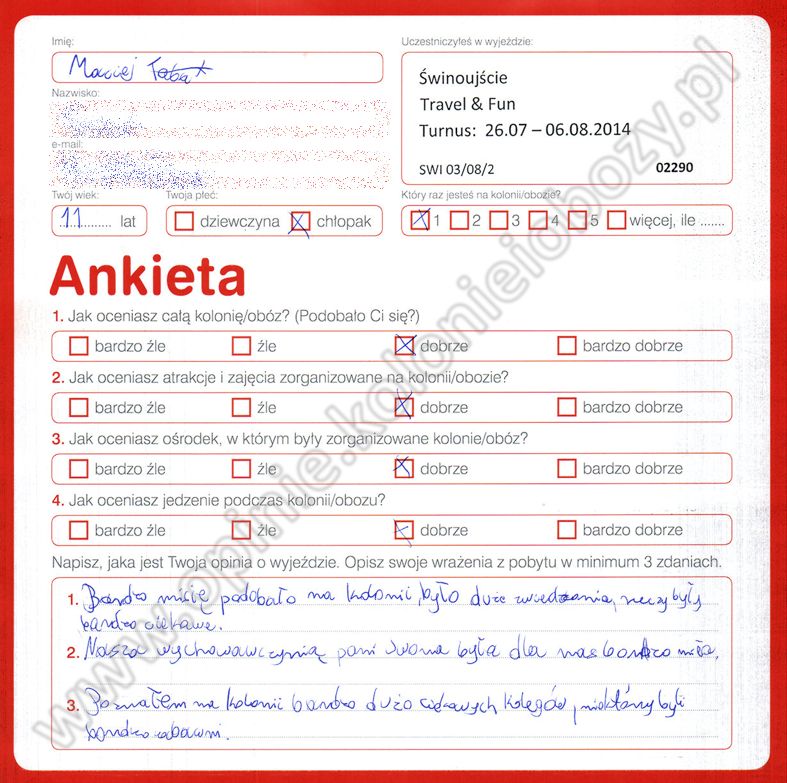 Imię:
Maciej
Nazwisko:
e-mail:
Uczestniczyłeś w wyjeździe:
Świnoujście
Travel & Fun
Turnus: 26.07 – 06.08.2014
SWI 03/08/2 02290
Twój wiek:
11 lat
Twoja płeć:
dziewczyna chłopak
Który raz jesteś na kolonii/obozie?
1 2 3 4 5 więcej, ile .......
Ankieta
1. Jak oceniasz całą kolonię/obóz? (Podobało Ci się?)
bardzo źle źle dobrze bardzo dobrze
2. Jak oceniasz atrakcje i zajęcia zorganizowane na kolonii/obozie?
bardzo źle źle dobrze bardzo dobrze
3. Jak oceniasz ośrodek, w którym były zorganizowane kolonie/obóz?
bardzo źle źle dobrze bardzo dobrze
4. Jak oceniasz jedzenie podczas kolonii/obozu?
bardzo źle źle dobrze bardzo dobrze
Napisz, jaka jest Twoja opinia o wyjeździe. Opisz swoje wrażenia z pobytu w minimum 3 zdaniach.
1. Bardzo mi się podobało na kolonii, było duże zwiedzania, rzeczy były
bardzo ciekawe.
2. Nasza wychowawczynią pani Iwona była dla nas bardzo miła.
3. Poznałem na kolonii bardzo dużo ciekawych kolegów, niektórzy byli
bardzo zabawni.
www.opinie.kolonieiobozy.pl